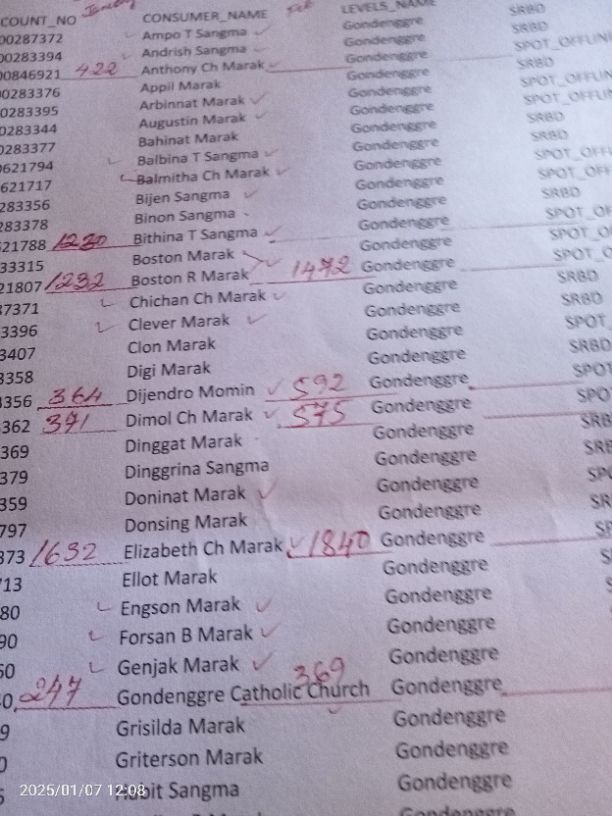 COUNT_NO January CONSUMER_NAME Feb LEVELS_NAME SRBD
00287372 Ampo T Sangma Gondenggre SRBD
00283394 Andrish Sangma Gondenggre SPOT_OFFLINE
00846921 422 Anthony Ch Marak Gondenggre SRBD
00283376 Appil Marak Gondenggre SPOT_OFFLIN
0283395 Arbinnat Marak Gondenggre SPOT_OFFLIN
0283344 Augustin Marak Gondenggre SRBD
0283377 Bahinat Marak Gondenggre SPOT_OFF
0621794 Balbina T Sangma Gondenggre SPOT_OFF
621717 Balmitha Ch Marak Gondenggre SRBD
283356 Bijen Sangma Gondenggre
283378 Binon Sangma Gondenggre
21788 1230 Bithina T Sangma Gondenggre
33315 Boston Marak Gondenggre
21807 1232 Boston R Marak 1472 Gondenggre SRBD
37371 Chichan Ch Marak Gondenggre SRBD
3396 Clever Marak Gondenggre SPOT
3407 Clon Marak Gondenggre SRBD
3358 Digi Marak Gondenggre SPOT
3356 364 Dijendro Momin 592 Gondenggre SPO
362 391 Dimol Ch Marak 575 Gondenggre SRB
369 Dinggat Marak Gondenggre SRB
379 Dinggrina Sangma Gondenggre SPO
359 Doninat Marak Gondenggre
797 Donsing Marak Gondenggre
373 1632 Elizabeth Ch Marak 1840 Gondenggre
713 Ellot Marak Gondenggre
80 Engson Marak Gondenggre
90 Forsan B Marak Gondenggre
50 Genjak Marak Gondenggre
0 247 Gondenggre Catholic Church 369 Gondenggre
9 Grisilda Marak Gondenggre
0 Griterson Marak Gondenggre
5 Habit Sangma Gondenggre
Gondenggre
2025/01/07 12:08